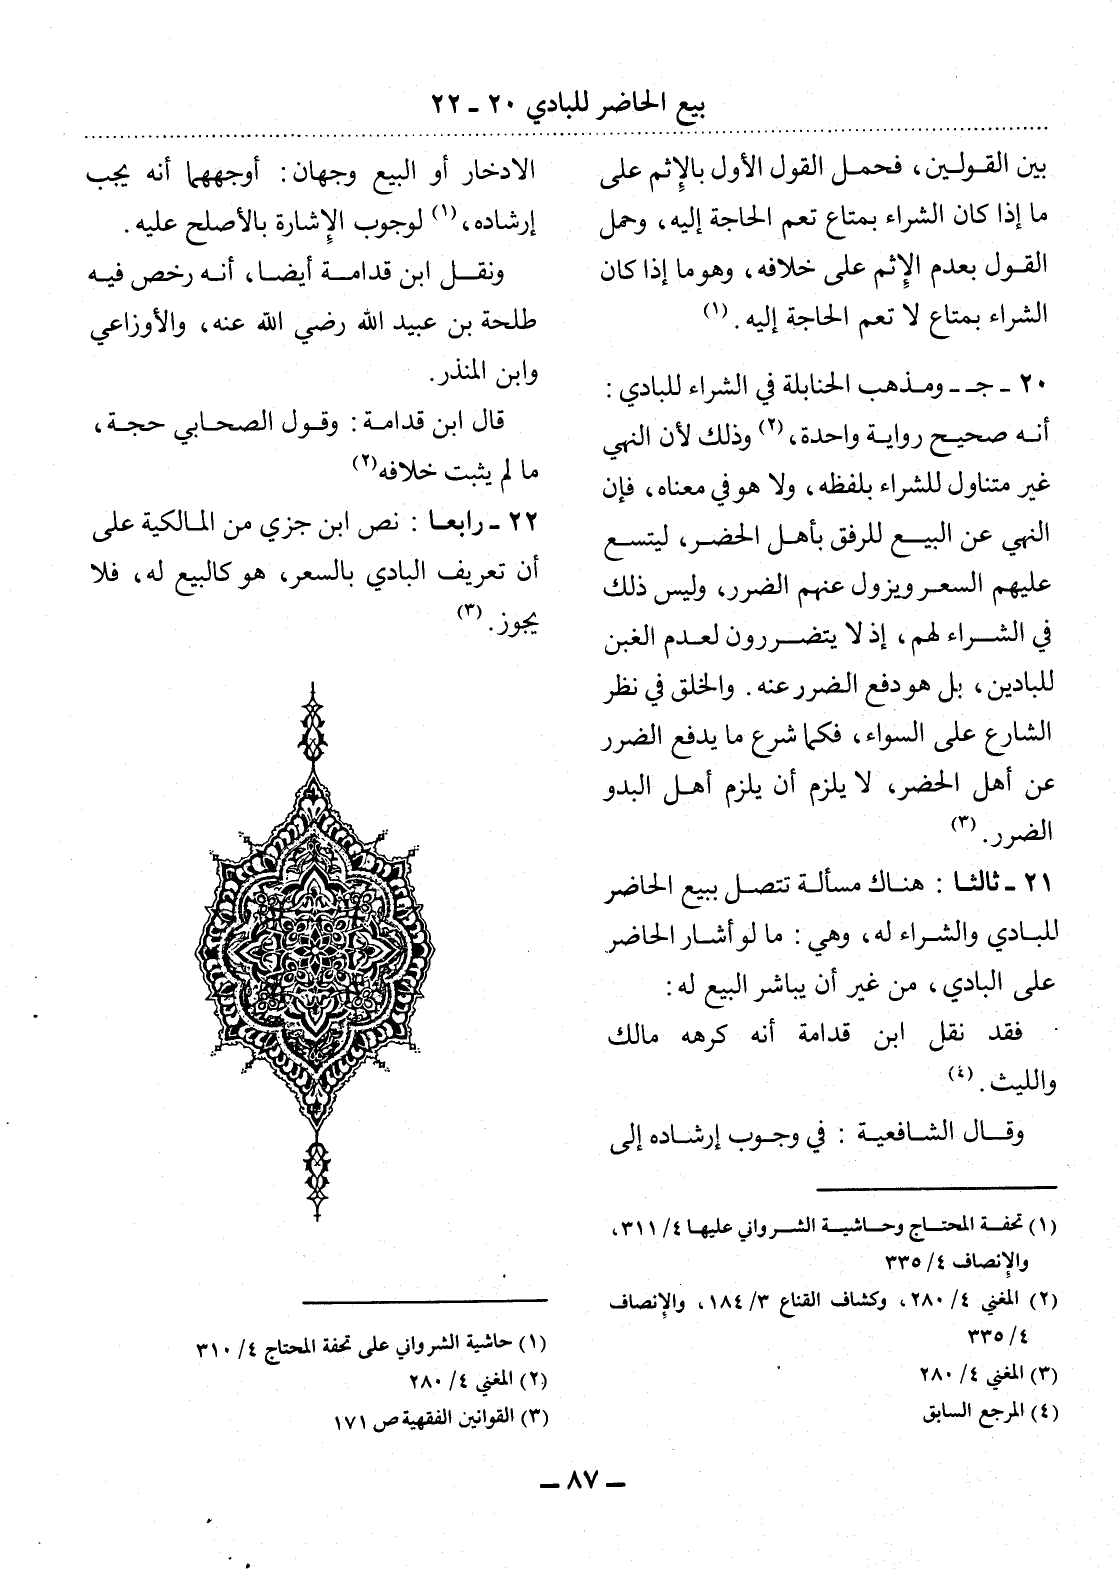 بيع الحاضر للبادي ٢٠ ـ ٢٢
بين القولين، فحمل القول الأول بالإثم على
ما إذا كان الشراء بمتاع تعم الحاجة إليه، وحمل
القول بعدم الإثم على خلافه، وهو ما إذا كان
الشراء بمتاع لا تعم الحاجة إليه. (١)
٢٠ ـ جـ ـ ومذهب الحنابلة في الشراء للبادي :
أنه صحيح رواية واحدة، (٢) وذلك لأن النهي
غير متناول للشراء بلفظه، ولا هو في معناه، فإن
النهي عن البيع للرفق بأهل الحضر، ليتسع
عليهم السعر ويزول عنهم الضرر، وليس ذلك
في الشراء لهم، إذ لا يتضررون لعدم الغبن
للبادين، بل هو دفع الضرر عنه. والخلق في نظر
الشارع على السواء، فكما شرع ما يدفع الضرر
عن أهل الحضر، لا يلزم أن يلزم أهل البدو
الضرر. (٣)
٢١ ـ ثالثا : هناك مسألة تتصل ببيع الحاضر
للبادي والشراء له، وهي : ما لو أشار الحاضر
على البادي، من غير أن يباشر البيع له :
فقد نقل ابن قدامة أنه كرهه مالك
والليث. (٤)
وقال الشافعية : في وجوب إرشاده إلى
(١) تحفة المحتاج وحاشية الشرواني عليها ٤/ ٣١١،
والإنصاف ٤/ ٣٣٥
(٢) المغني ٤/ ٢٨٠، وكشاف القناع ٣/ ١٨٤، والإنصاف
٤/ ٣٣٥
(٣) المغني ٤/ ٢٨٠
(٤) المرجع السابق
الادخار أو البيع وجهان : أوجههما أنه يجب
إرشاده، (١) لوجوب الإشارة بالأصلح عليه.
ونقل ابن قدامة أيضا، أنه رخص فيه
طلحة بن عبيد الله رضي الله عنه، والأوزاعي
وابن المنذر.
قال ابن قدامة : وقول الصحابي حجة،
ما لم يثبت خلافه (٢)
٢٢ ـ رابعا : نص ابن جزي من المالكية على
أن تعريف البادي بالسعر، هو كالبيع له، فلا
يجوز. (٣)
(١) حاشية الشرواني على تحفة المحتاج ٤/ ٣١٠
(٢) المغني ٤/ ٢٨٠
(٣) القوانين الفقهية ص ١٧١
ـ ٨٧ ـ